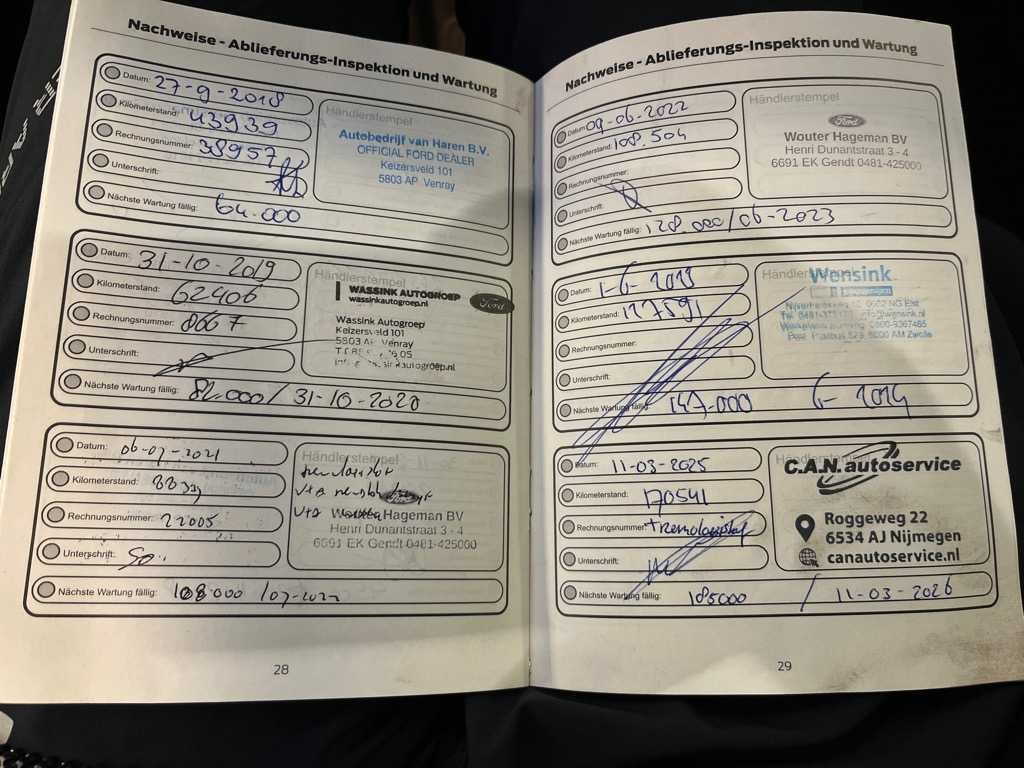 Nachweise - Ablieferungs-Inspektion und Wartung
Datum: 27-9-2018
Kilometerstand: 43939
Rechnungsnummer: 38957
Unterschrift:
Nächste Wartung fällig: 64.000
Händlerstempel
Autobedrijf van Haren B.V.
OFFICIAL FORD DEALER
Keizersveld 101
5803 AP Venray
Datum: 31-10-2019
Kilometerstand: 62406
Rechnungsnummer: 8667
Unterschrift:
Nächste Wartung fällig: 82.000 / 31-10-2020
Händlerstempel
WASSINK AUTOGROEP
wassinkautogroep.nl
Ford
Wassink Autogroep
Keizersveld 101
5803 AP Venray
Datum: 06-07-2021
Kilometerstand:
Rechnungsnummer: 22005
Unterschrift:
Nächste Wartung fällig: 108.000 /07-2022
Händlerstempel
Ford
Hageman BV
Henri Dunantstraat 3 - 4
6691 EK Gendt 0481-425000
28
Nachweise - Ablieferungs-Inspektion und Wartung
Datum: 09-06-2022
Kilometerstand: 108.504
Rechnungsnummer:
Unterschrift:
Nächste Wartung fällig: 128.000/06-2023
Händlerstempel
Ford
Wouter Hageman BV
Henri Dunantstraat 3 - 4
6691 EK Gendt 0481-425000
Datum: 1-6-
Kilometerstand: 127591
Rechnungsnummer:
Unterschrift:
Nächste Wartung fällig: 147.000 6-2024
Händlerstempel
Wensink
Datum: 11-03-2025
Kilometerstand: 170541
Rechnungsnummer:
Unterschrift:
Nächste Wartung fällig: 185000 / 11-03-2026
Händlerstempel
C.A.N. autoservice
Roggeweg 22
6534 AJ Nijmegen
canautoservice.nl
29